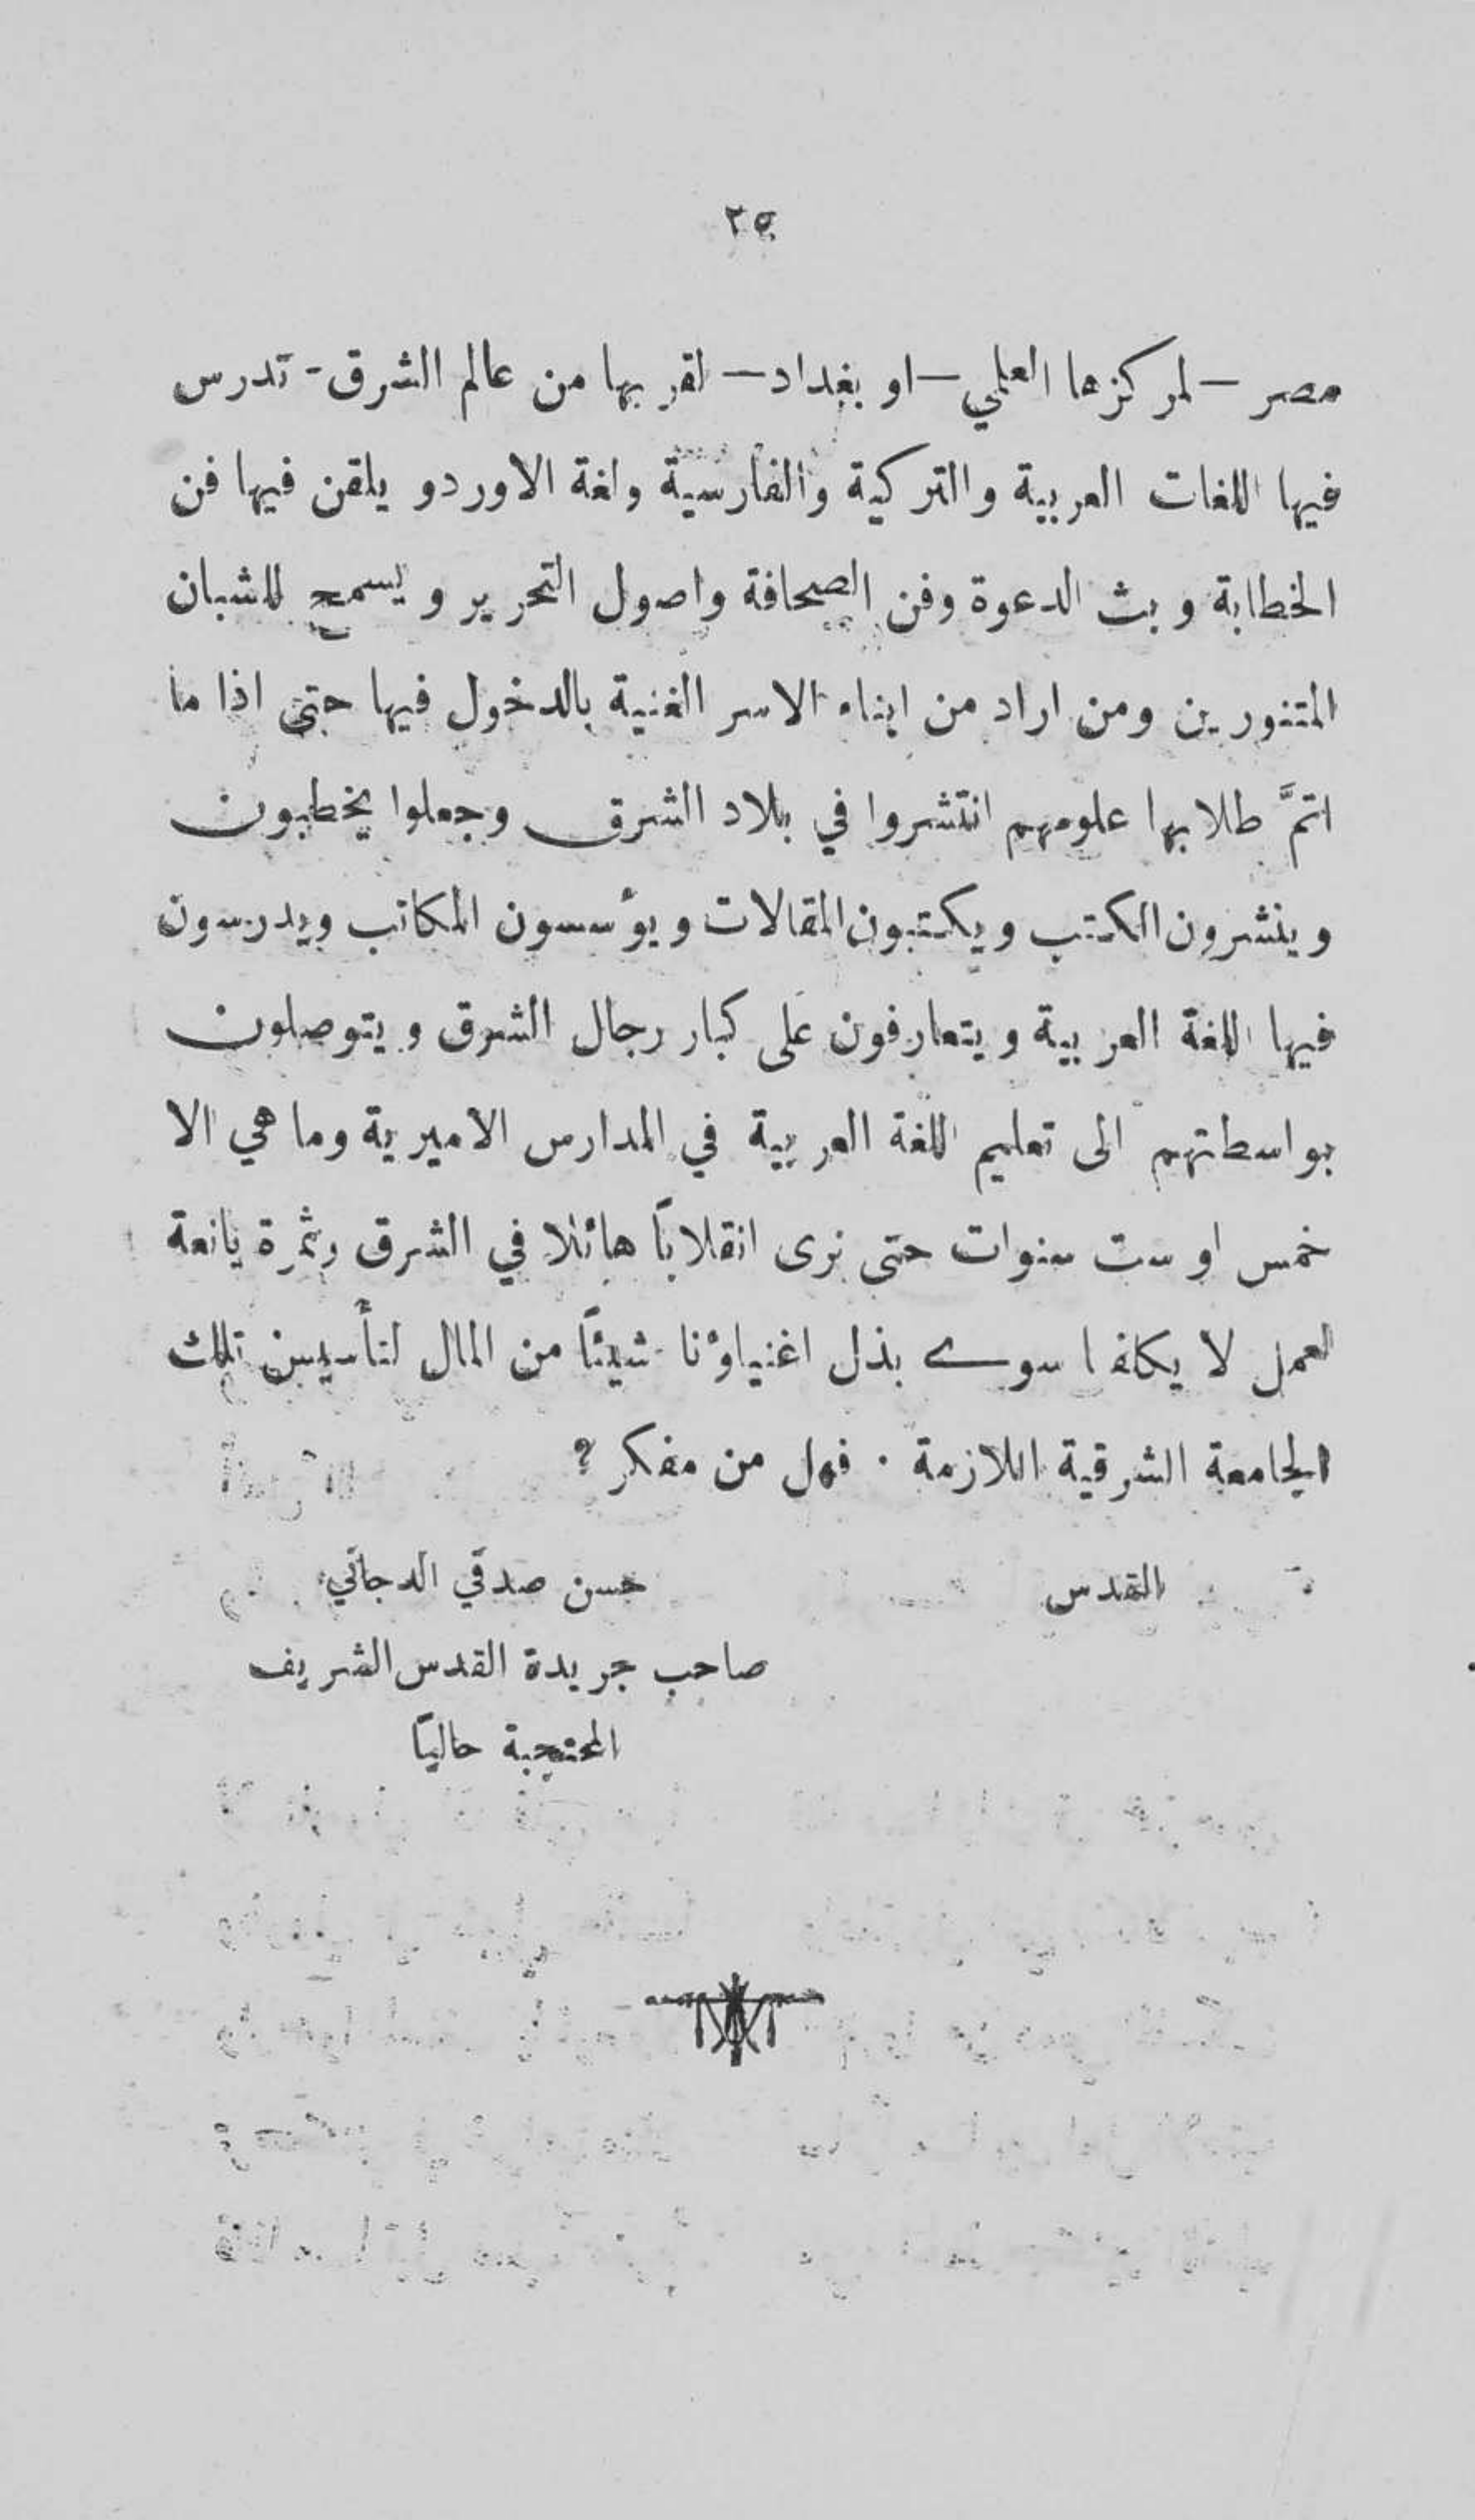 ٢٥
مصر — لمركزها العلمي — او بغداد — لقربها من عالم الشرق - تدرس
فيها اللغات العربية والتركية والفارسية ولغة الاوردو يلقن فيها فن
الخطابة وبث الدعوة وفن الصحافة واصول التحرير ويسمح للشبان
المتنورين ومن اراد من ابناء الاسر الغنية بالدخول فيها حتى اذا ما
اتمَّ طلابها علومهم انتشروا في بلاد الشرق وجعلوا يخطبون
وينشرون الكتب ويكتبون المقالات ويؤسسون المكاتب ويدرسون
فيها اللغة العربية ويتعارفون على كبار رجال الشرق ويتوصلون
بواسطتهم الى تعليم اللغة العربية في المدارس الاميرية وما هي الا
خمس او ست سنوات حتى نرى انقلاباً هائلا في الشرق وثمرة يانعة
لعمل لا يكلفا سوى بذل اغنياؤنا شيئاً من المال لتأسيس تلك
الجامعة الشرقية اللازمة . فهل من مفكر ؟
القدس حسن صدقي الدجاني
صاحب جريدة القدس الشريف
المحتجبة حالياً